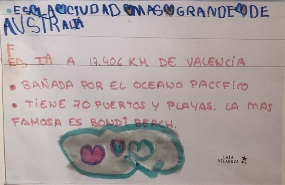 ES LA CIUDAD MAS GRANDE DE
AUSTRALIA
ESTÁ A 17.406 KM DE VALENCIA
• BAÑADA POR EL OCEANO PACÍFICO
• TIENE 70 PUERTOS Y PLAYAS. LA MAS
FAMOSA ES BONDI BEACH.